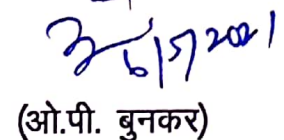 6/5/2021
(ओ.पी. बुनकर)